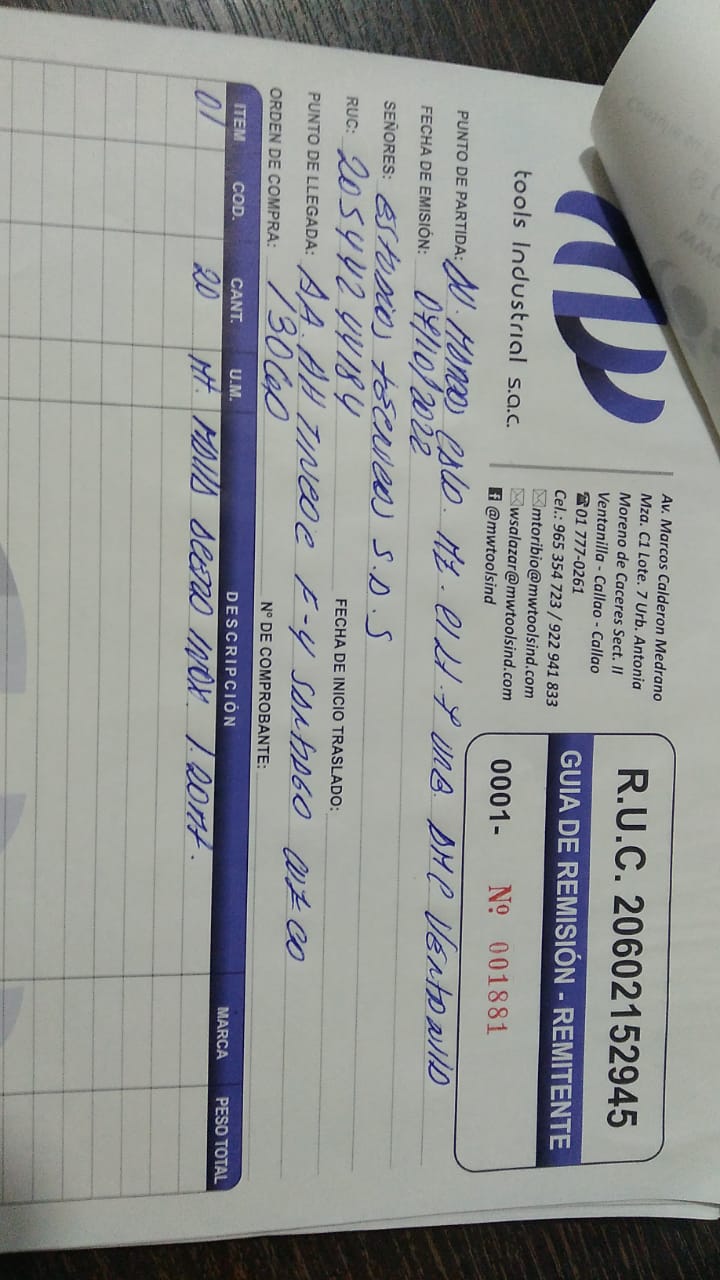 tools Industrial s.a.c.
Av. Marcos Calderon Medrano
Mza. C1 Lote. 7 Urb. Antonia
Moreno de Caceres Sect. II
Ventanilla - Callao - Callao
01 777-0261
Cel.: 965 354 723 / 922 941 833
mtoribio@mwtoolsind.com
wsalazar@mwtoolsind.com
@mwtoolsind
R.U.C. 20602152945
GUIA DE REMISIÓN - REMITENTE
0001- Nº 001881
PUNTO DE PARTIDA: AV.
FECHA DE EMISIÓN: 04/10/2022
SEÑORES: estudios técnicos S.A.S
RUC: 20544244184 FECHA DE INICIO TRASLADO:
PUNTO DE LLEGADA: F-4 Santiago
ORDEN DE COMPRA: Nº DE COMPROBANTE:
ITEM COD. CANT. U.M. DESCRIPCIÓN MARCA PESO TOTAL
01 20 Mt. Malla acero inox. 1.20mt.